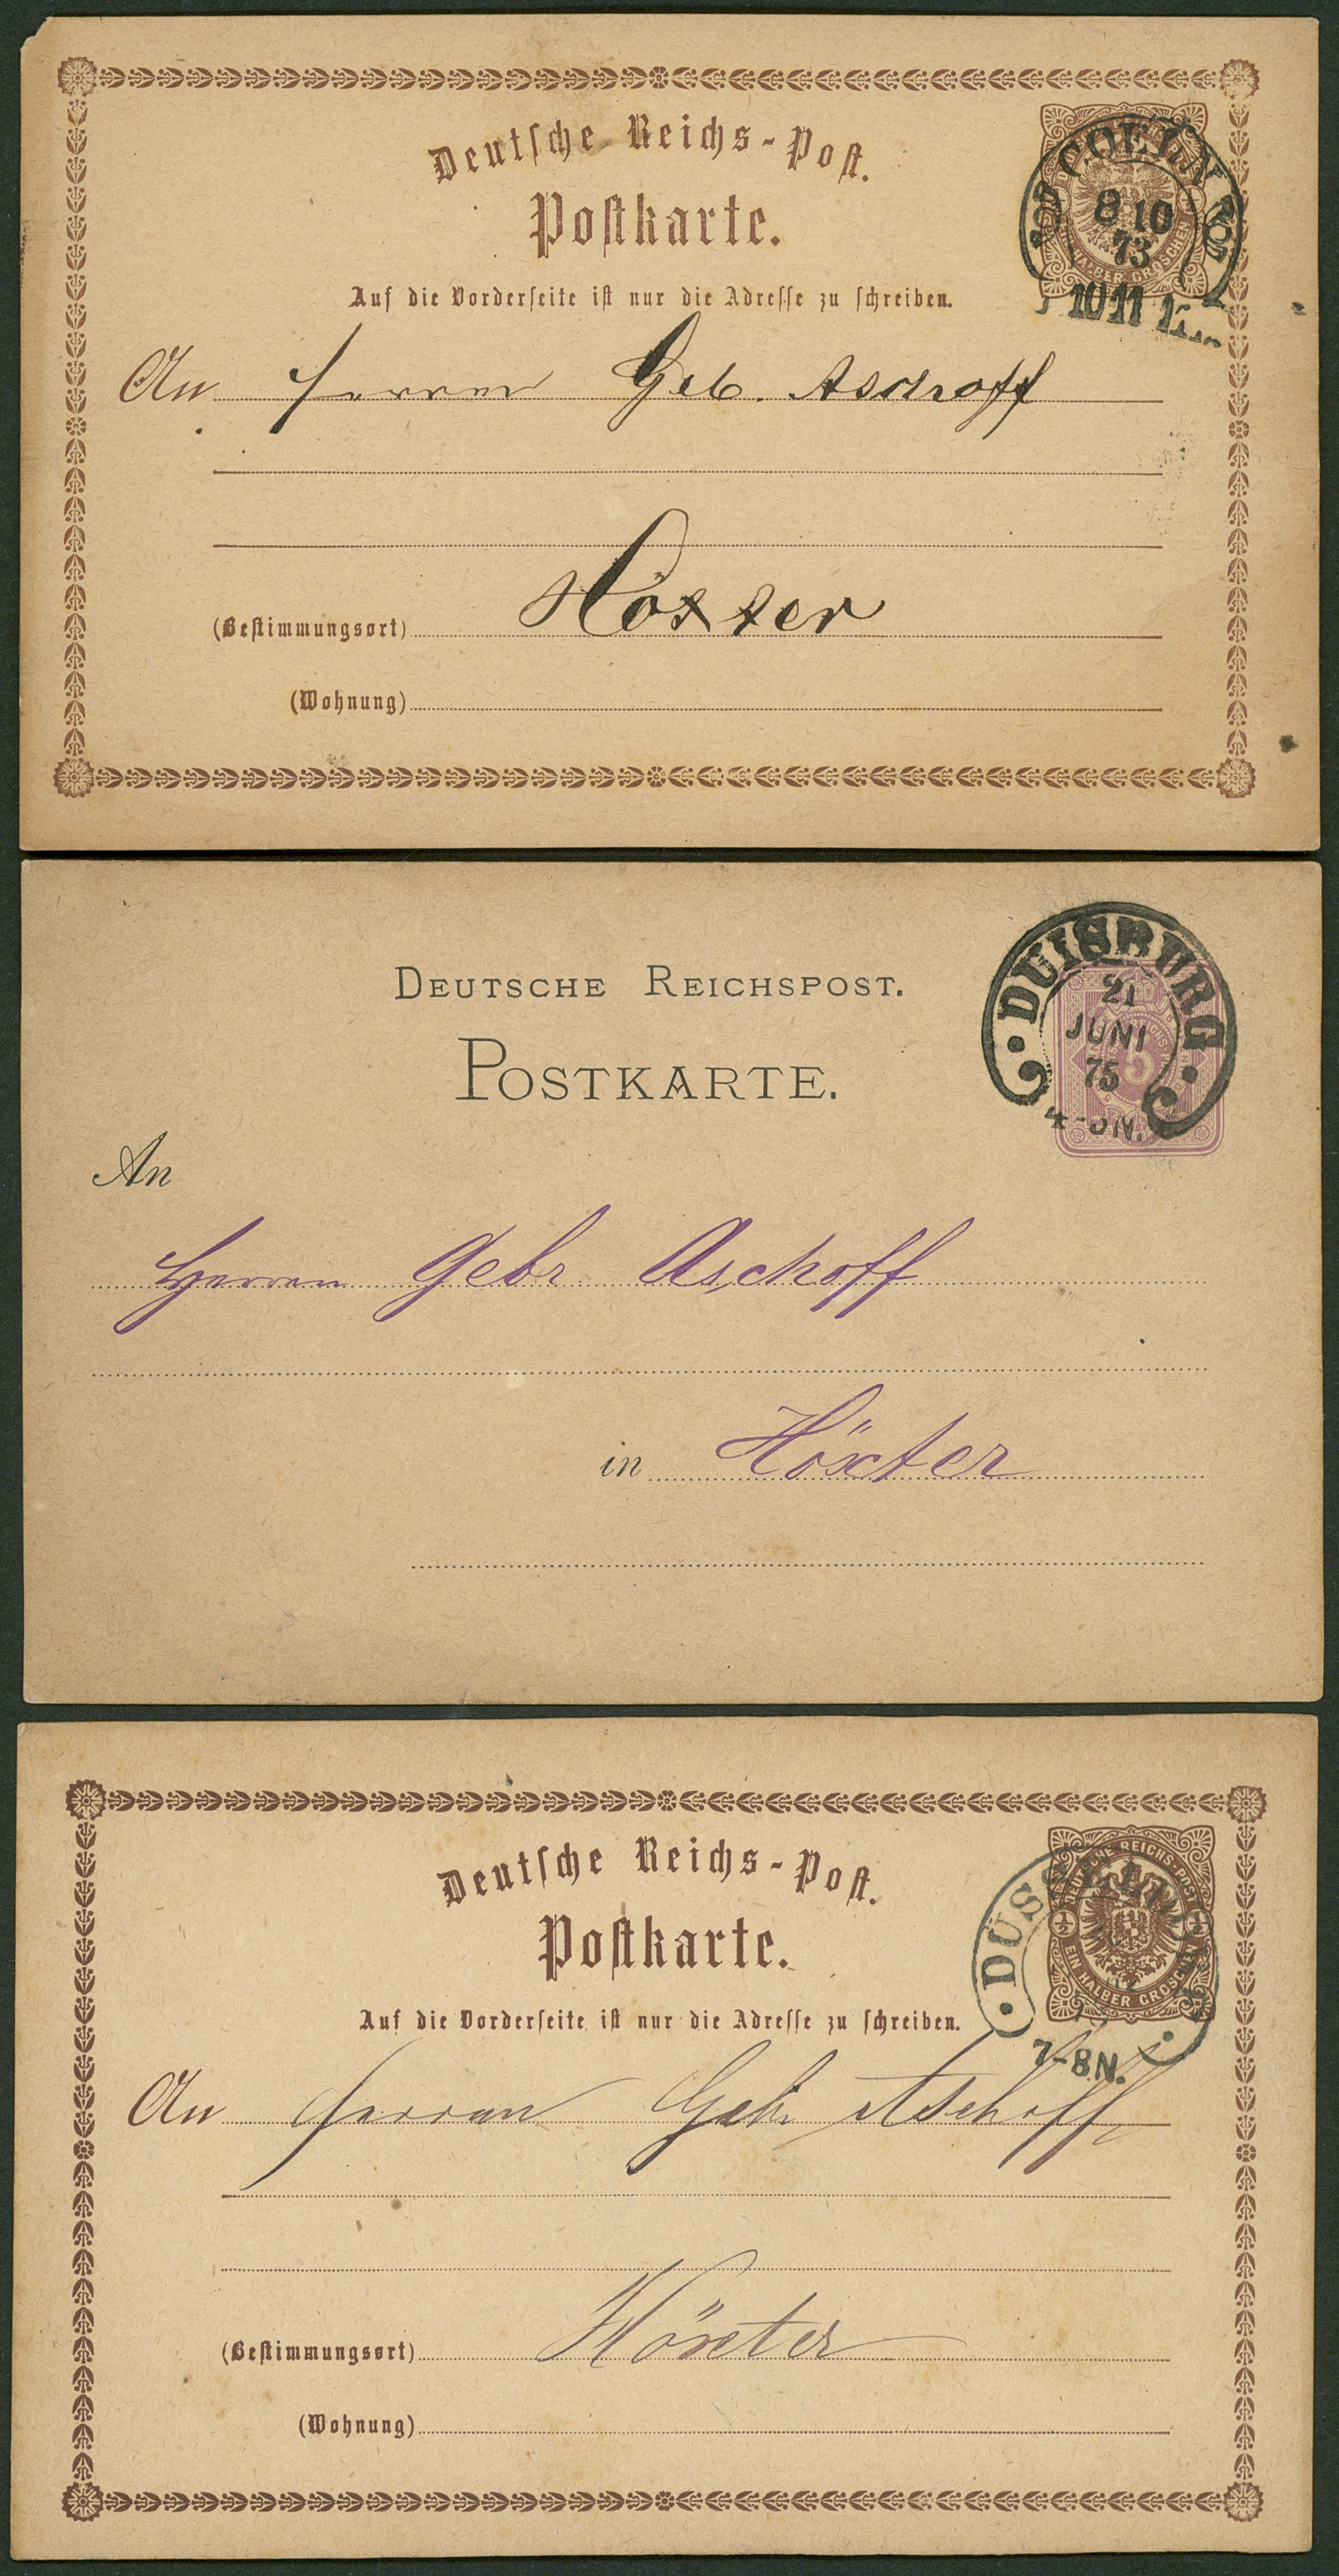 Deutsche Reichs-Post.
Postkarte.
COELN
8 10
73
HALBER GROSCHEN
10 11
Auf die Vorderseite ist nur die Adresse zu schreiben.
An Herren Geb. Aschoff
Höxter
(Bestimmungsort)
(Wohnung)
DEUTSCHE REICHSPOST.
POSTKARTE.
DUISBURG
21
JUNI
75
5
4-5N.
An
Herren Gebr. Aschoff
in Höxter
Deutsche Reichs-Post.
Postkarte.
DEUTSCHE REICHS-POST
½ ½
EIN HALBER GROSCHEN
7-8N.
Auf die Vorderseite ist nur die Adresse zu schreiben.
An Herren Gebr Aschoff
(Bestimmungsort) Höxter
(Wohnung)